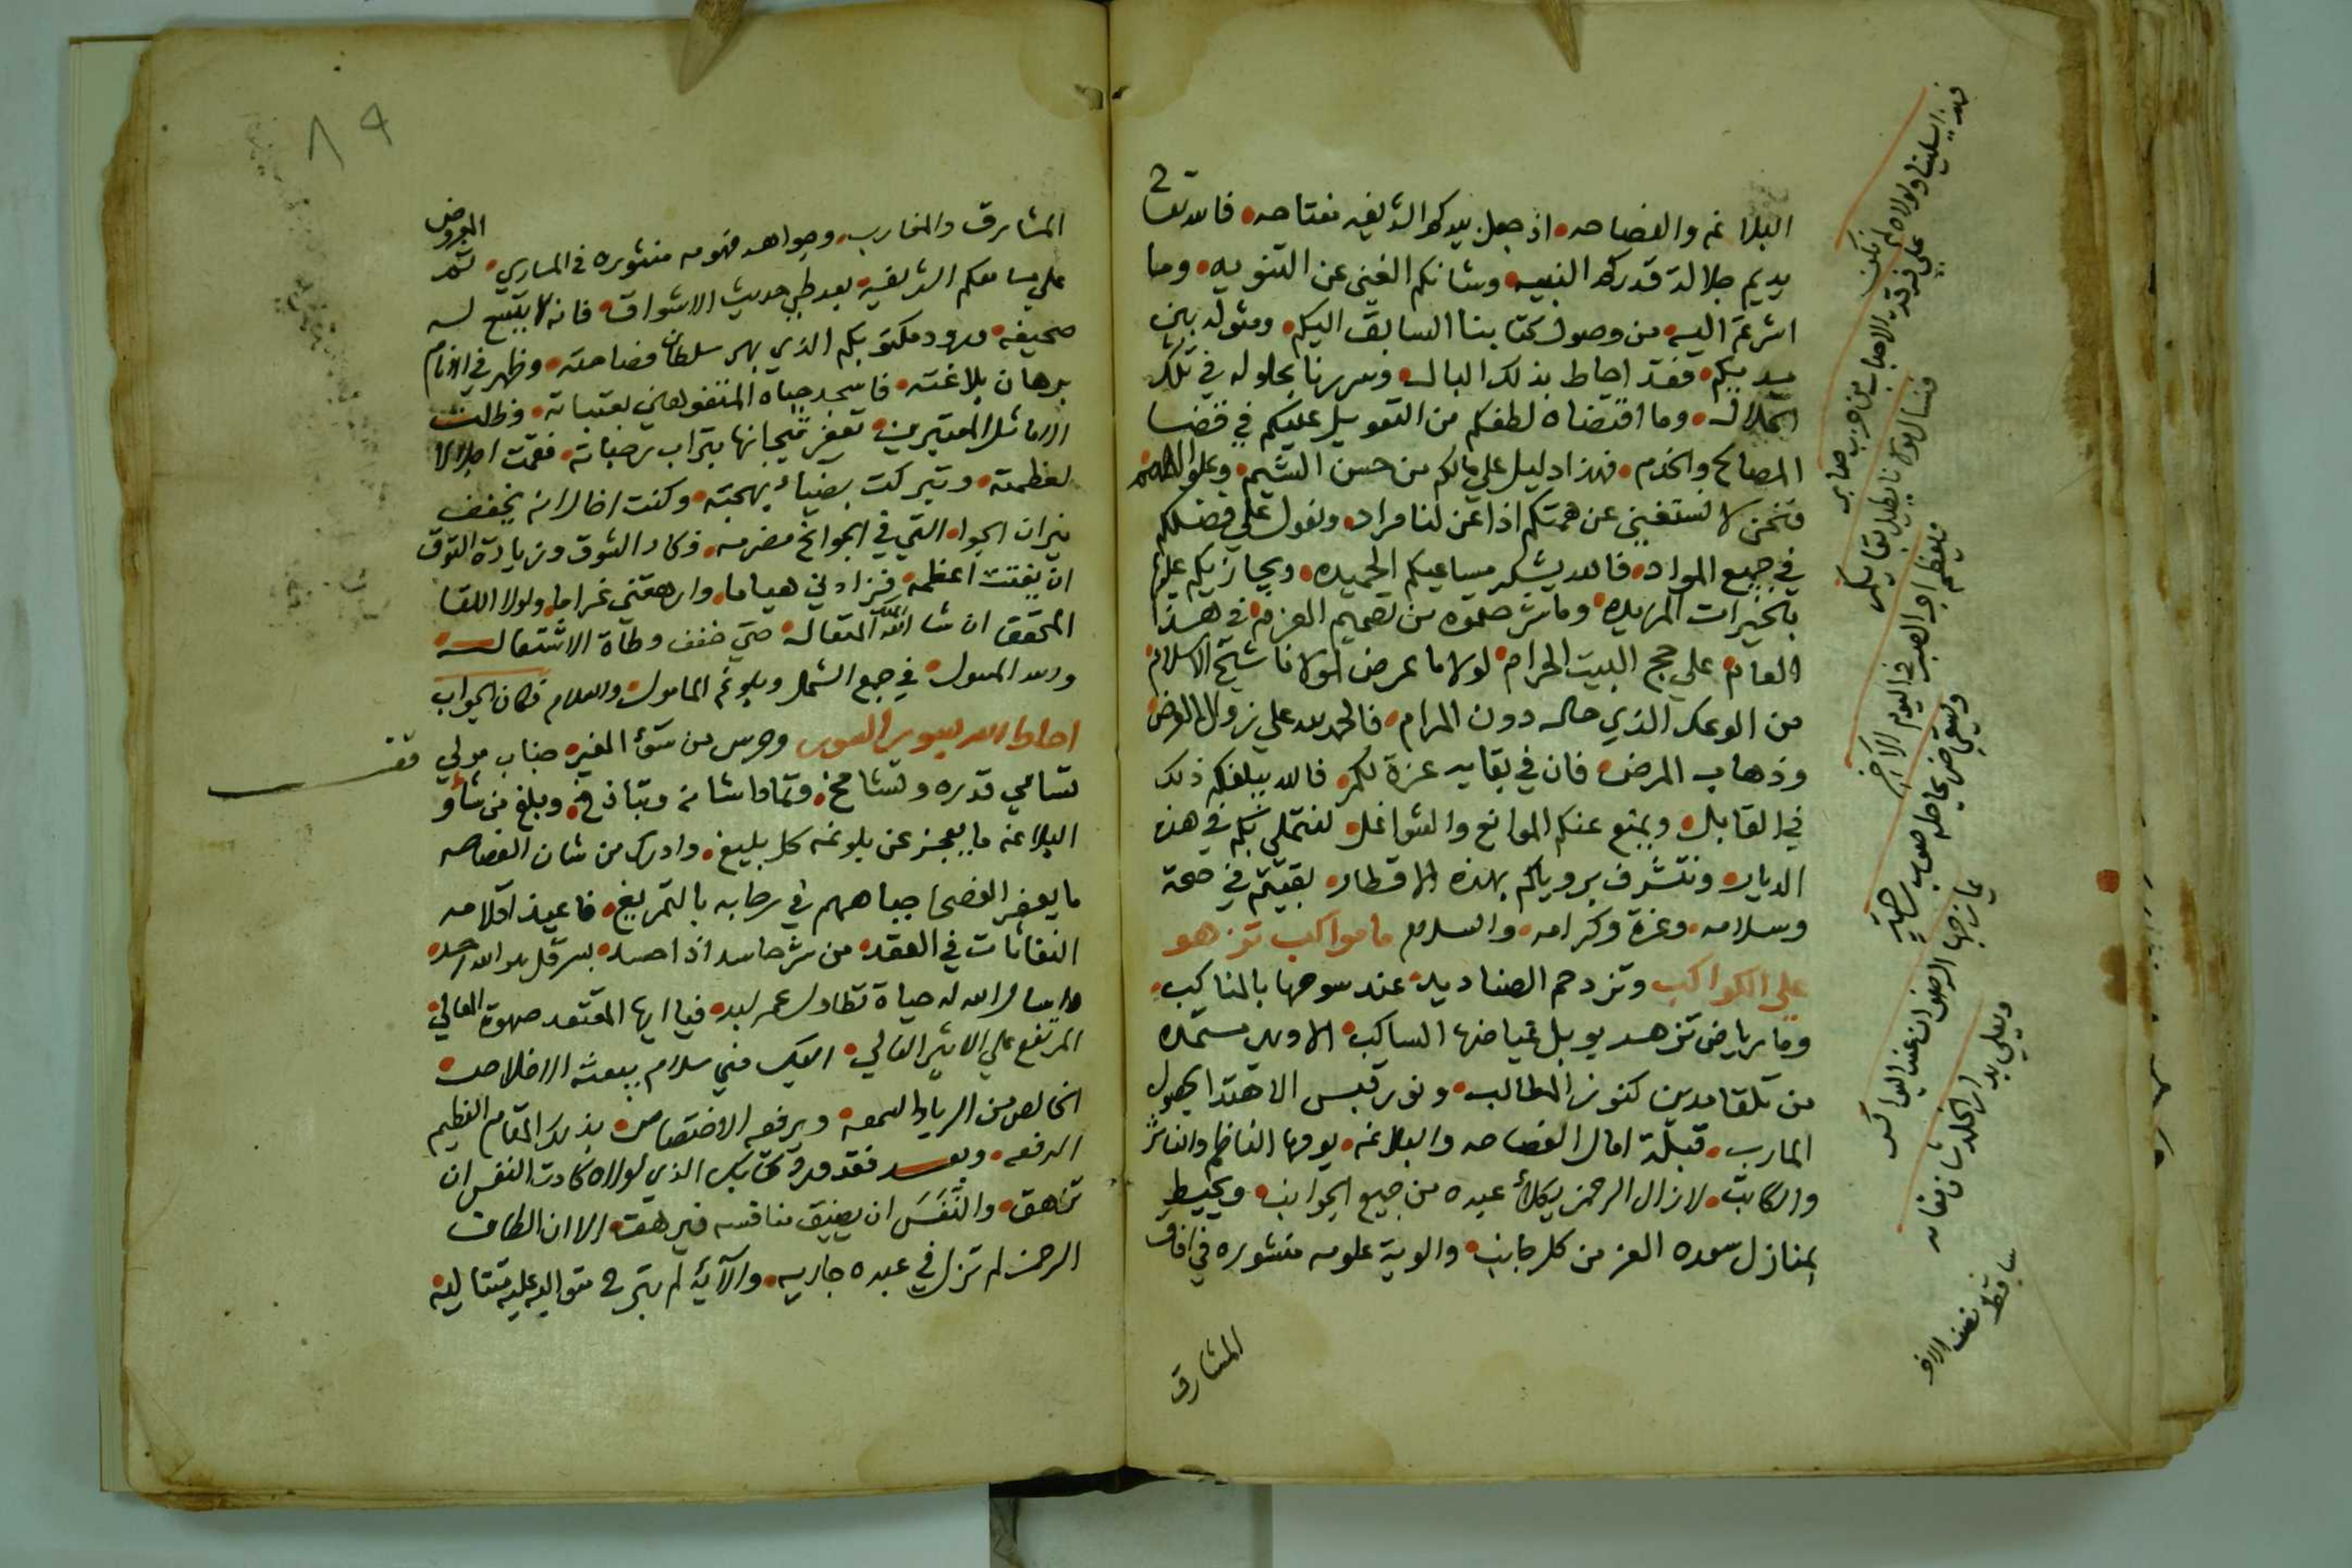 البلاغه والفصاحه اذ جعل يدكم الشريفه مفتاحه فالله تعا
يديم جلالة قدرك النبيه وشانكم الغنى عن التنويه وما
اشرتم اليه من وصول كتابنا السابق اليكم ومثوله بين
يديكم فقد احاط بذلك البال وسررنا بحلوله في تلك
الخلال وما اقتضاه لطفكم من التعويل عليكم في قضا
المصالح والخدم فهذا دليل على مالكم من حسن الشيم وعلو الهمم
فنحن لا نستغنى عن همتكم اذا عن لنا مراد ونعول على فضلكم
في جميع المواد فالله يشكر مساعيكم الحميده ويجازيكم عليها
بالخيرات المزيده وما شرحتموه من تصميم العزم في هذا
العام على حج البيت الحرام لولا ما عرض لمولانا شيخ الاسلام
من الوعك الذي حال دون المرام فالحمد لله على زوال العرض
وذهاب المرض فان في بقايه عزة لكم فالله يبلغكم ذلك
في القابل ويمنع عنكم الموانع والشواغل لنتملى بكم في هذه
الديار ونتشرف برؤياكم بهذه الاقطار بقيتم في صحة
وسلامه وعزة وكرامه والسلام ما مواكب تزهو
على الكواكب وتزدحم الصناديد عند سوحها بالمناكب
وما رياض تزهر بوبل غياضها الساكب الا وهي مستمده
من تلقا مدين كنوز المطالب ونور قبس الاهتدا بحصول
المارب قبلة امال الفصاحه والبلاغه يومها الناظم والناثر
والكاتب لا زال الرحمن يكلأ عبده من جميع الجوانب ويحيط
بمنازل سعده العز من كل جانب والوية علومه منشوره في افاق
المشارق
المشارق والمغارب وجواهر فهومه منثوره في المساري ثم المعروض
على مسامعكم الشريفه بعد طي حديث الاشواق فانه لا يتسع له
صحيفه ورود مكتوبكم الذي بهر سلطان فصاحته وظهر في الانام
برهان بلاغته فاسجد جباه المتفوهين لعتباته وظلت
الاماثل المعتبرين تعفر تيجانها بتراب رحباته فقمت اجلالا
لعظمته وتبركت بضياء بهجته وكنت اخال انه يخفف
نيران الجواه التي في الجوانح مضرمه وكاد الشوق وزيادة التوق
ان يفتت اعظمه فزادني هياما وارهقني غراما ولولا اللقا
المحقق ان شا الله المتعال حتى خفف وطأة الاشتعال
والله المسول في جمع الشمل وبلوغ المامول والسلام فكان الجواب
احاط الله بسور السور وحرس من سوء الغير جناب مولى
تسامى قدره وتشامخ وتمادا شانه وتباذخ وبلغ من شأو
البلاغه ما يعجز عن بلوغه كل بليغ وادرك من شان الفصاحه
ما يعفر الفصحا جباههم في رحابه بالتمريغ فاعيذ اقلامه
النفاثات في العقد من شر حاسد اذا حسد بسر قل هو الله احد
واسال الله له حياة تطاول عمر لبد فيا ايها المقتعد صهوة المعالي
المرتفع على الاثير العالي اليك مني سلام يبعثه الاخلاص
الخالص من الريا والسمعه ويرفعه الاختصاص بذلك المقام العظيم
الرفعه وبعد فقد ورد كتابك الذي لولاه كادت النفس ان
تزهق والنَّفَسَ ان يضيق منافسه فيرهق الا ان الطاف
الرحمن لم تزل في عبده جاريه والآئه لم تبرح متواليه عليه متتاليه